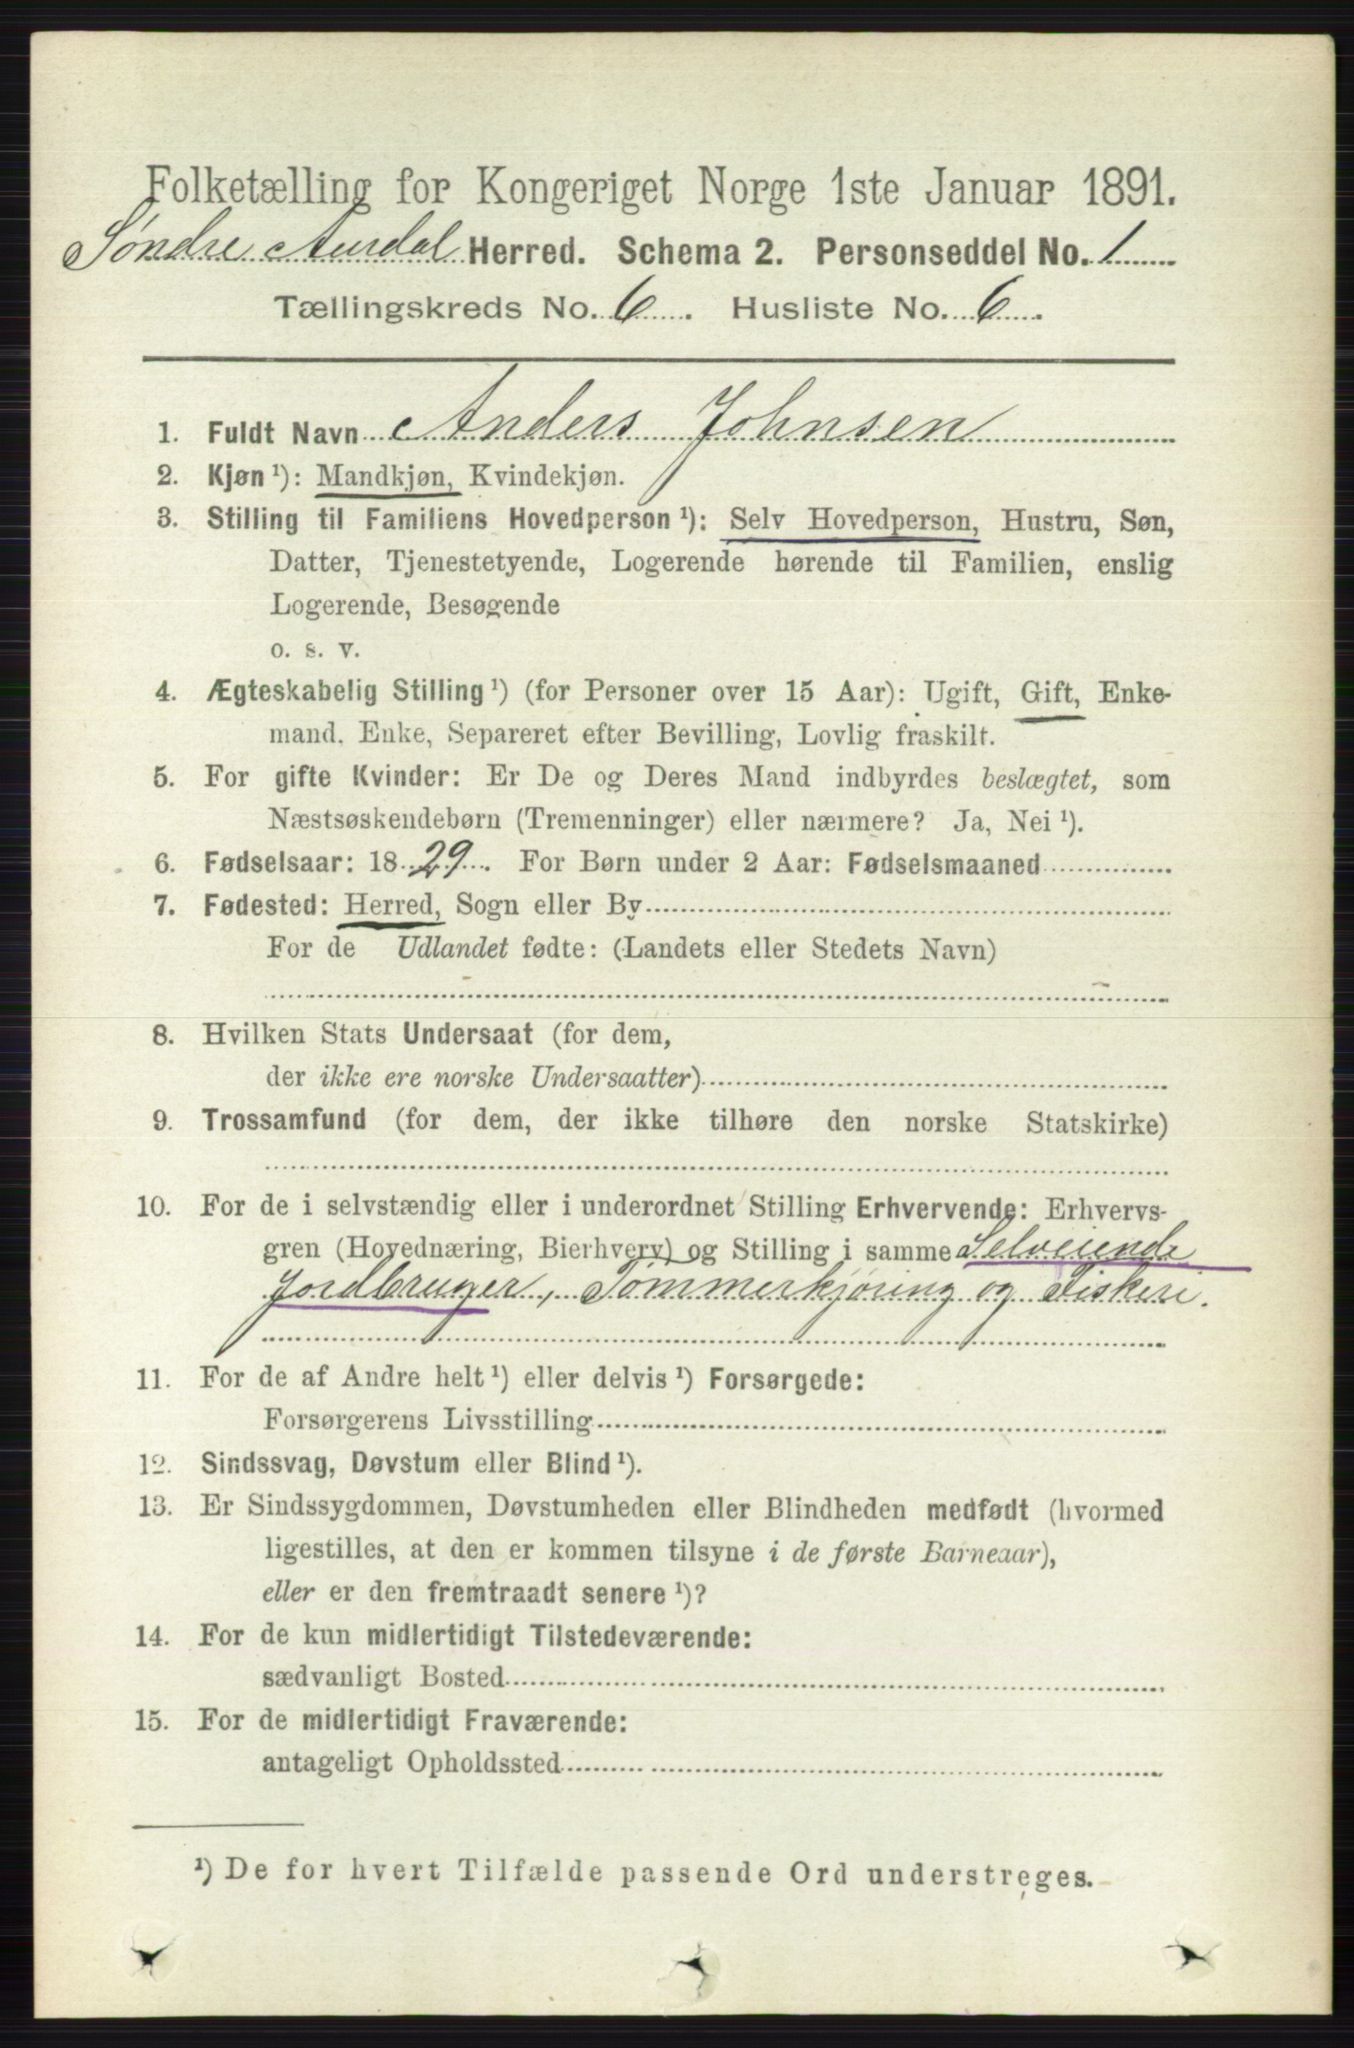 Folketælling for Kongeriget Norge 1ste Januar 1891.
Søndre Aurdal Herred. Schema 2. Personseddel No. 1
Tællingskreds No. 6. Husliste No. 6.
1. Fuldt Navn Anders Johnsen
2. Kjøn ¹): Mandkjøn, Kvindekjøn.
3. Stilling til Familiens Hovedperson ¹): Selv Hovedperson, Hustru, Søn,
Datter, Tjenestetyende, Logerende hørende til Familien, enslig
Logerende, Besøgende
o. s. v.
4. Ægteskabelig Stilling ¹) (for Personer over 15 Aar): Ugift, Gift, Enke-
mand, Enke, Separeret efter Bevilling, Lovlig fraskilt.
5. For gifte Kvinder: Er De og Deres Mand indbyrdes beslægtet, som
Næstsøskendebørn (Tremenninger) eller nærmere? Ja, Nei ¹).
6. Fødselsaar: 1829. For Børn under 2 Aar: Fødselsmaaned
7. Fødested: Herred, Sogn eller By
For de Udlandet fødte: (Landets eller Stedets Navn)
8. Hvilken Stats Undersaat (for dem,
der ikke ere norske Undersaatter)
9. Trossamfund (for dem, der ikke tilhøre den norske Statskirke)
10. For de i selvstændig eller i underordnet Stilling Erhvervende: Erhvervs-
gren (Hovednæring, Bierhverv) og Stilling i samme Selveiende
Jordbruger, Tømmerkjøring og Fiskeri.
11. For de af Andre helt ¹) eller delvis ¹) Forsørgede:
Forsørgerens Livsstilling
12. Sindssvag, Døvstum eller Blind ¹).
13. Er Sindssygdommen, Døvstumheden eller Blindheden medfødt (hvormed
ligestilles, at den er kommen tilsyne i de første Barneaar),
eller er den fremtraadt senere ¹)?
14. For de kun midlertidigt Tilstedeværende:
sædvanligt Bosted
15. For de midlertidigt Fraværende:
antageligt Opholdssted
¹) De for hvert Tilfælde passende Ord understreges.